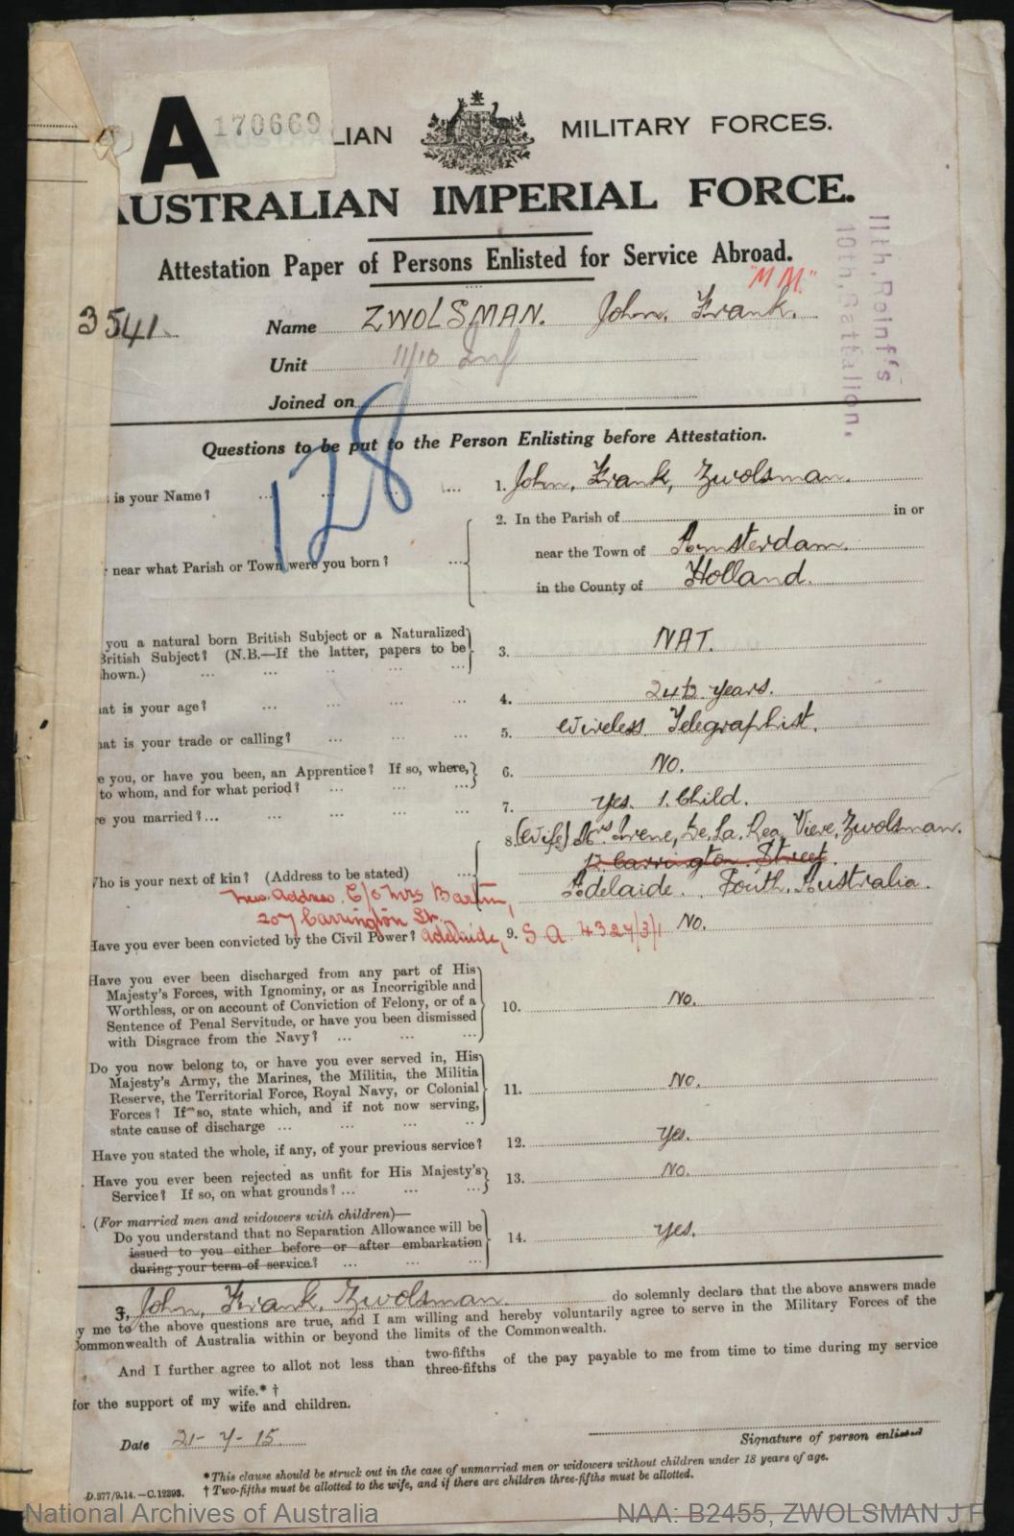 A 170669 LIAN MILITARY FORCES.
AUSTRALIAN IMPERIAL FORCE.
Attestation Paper of Persons Enlisted for Service Abroad.
"MM."
11th, Reinf's
10th, Battalion,
3541.
Name ZWOLSMAN. John. Frank.
Unit 11/10 Inf
Joined on
128
Questions to be put to the Person Enlisting before Attestation.
is your Name? ... 1. John, Frank, Zwolsman.
2. In the Parish of in or
near what Parish or Town were you born? ... near the Town of Amsterdam.
in the County of Holland.
you a natural born British Subject or a Naturalized
British Subject? (N.B.—If the latter, papers to be
hown.) ... 3. NAT.
at is your age? ... 4. years.
at is your trade or calling? ... 5. Wireless Telegraphist.
e you, or have you been, an Apprentice? If so, where,
to whom, and for what period? ... 6. No.
e you married? ... 7. Yes. 1. Child.
8. (Wife) Mrs Irene, De. La. Rea, Vieve, Zwolsman.
Carrington. Street.
Who is your next of kin? (Address to be stated) ... Adelaide. South. Australia.
New Address C/o Mrs Bartin,
207 Carrington St.
Adelaide, S A 4324/3/1
Have you ever been convicted by the Civil Power? 9. No.
Have you ever been discharged from any part of His
Majesty's Forces, with Ignominy, or as Incorrigible and
Worthless, or on account of Conviction of Felony, or of a
Sentence of Penal Servitude, or have you been dismissed
with Disgrace from the Navy? ... 10. No.
Do you now belong to, or have you ever served in, His
Majesty's Army, the Marines, the Militia, the Militia
Reserve, the Territorial Force, Royal Navy, or Colonial
Forces? If so, state which, and if not now serving,
state cause of discharge ... 11. No.
Have you stated the whole, if any, of your previous service? 12. Yes.
Have you ever been rejected as unfit for His Majesty's
Service? If so, on what grounds? ... 13. No.
(For married men and widowers with children)—
Do you understand that no Separation Allowance will be
issued to you either before or after embarkation
during your term of service? ... 14. Yes.
John, Frank, Zwolsman. do solemnly declare that the above answers made
y me to the above questions are true, and I am willing and hereby voluntarily agree to serve in the Military Forces of the
Commonwealth of Australia within or beyond the limits of the Commonwealth.
And I further agree to allot not less than two-fifths three-fifths of the pay payable to me from time to time during my service
for the support of my wife.* † wife and children.
Date 21-7-15
Signature of person enlisted
*This clause should be struck out in the case of unmarried men or widowers without children under 18 years of age.
† Two-fifths must be allotted to the wife, and if there are children three-fifths must be allotted.
D.377/9.14.—C.12393.
National Archives of Australia NAA: B2455, ZWOLSMAN J F